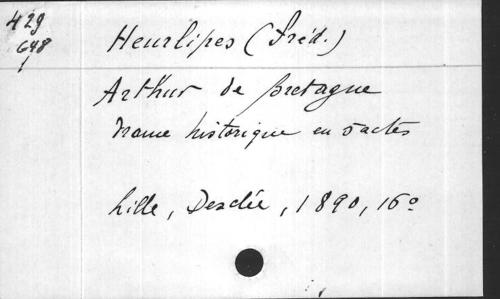 429
648
1
Heurlipes (Fréd.)
Arthur de Bretagne
Drame historique en 5 actes
Lille, Desclée, 1890, 16º